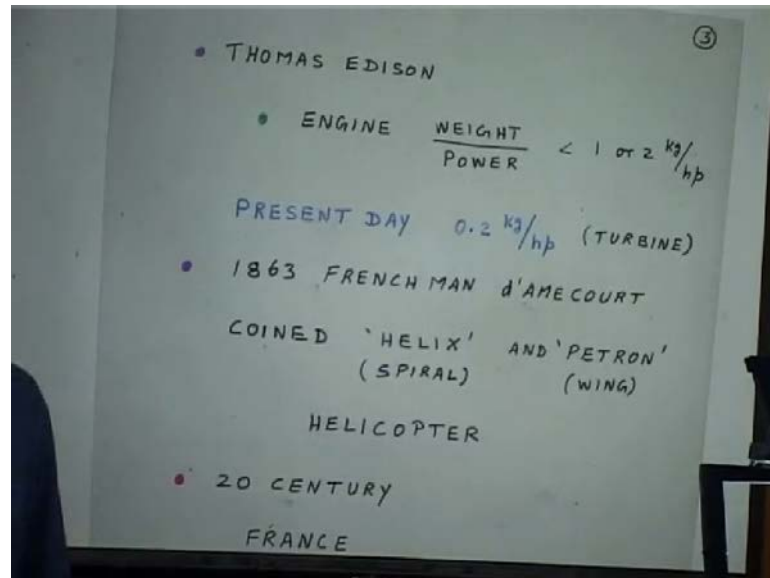 ③
• THOMAS EDISON
• ENGINE WEIGHT/POWER < 1 or 2 kg/hp
PRESENT DAY 0.2 kg/hp (TURBINE)
• 1863 FRENCH MAN d'AMECOURT
COINED 'HELIX' AND 'PETRON'
(SPIRAL) (WING)
HELICOPTER
• 20 CENTURY
FRANCE